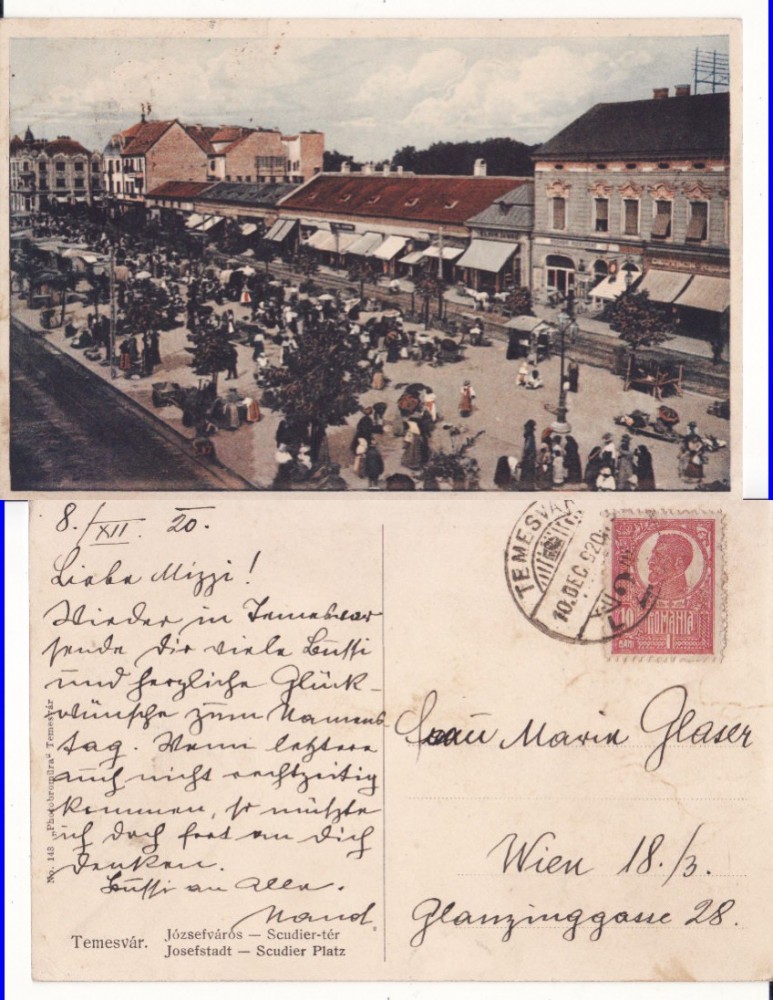 8./XII. 20.
Liebe Mizzi!
Wieder in Temesvar
sende Dir viele Bussi
und herzliche Glück-
wünsche zum Namens
tag. Wenn letztere
auch nicht rechtzeitig
kommen, so müßte
ich doch fest an Dich
denken.
Bussi an Alle.
Nand.
No. 143 „Photobromüra" Temesvár
Temesvár. Józsefváros — Scudier-tér
Josefstadt — Scudier Platz
TEMESVÁR
10.DEC.920
ROMANIA
BANI
Frau Marie Glaser
Wien 18./3.
Glanzinggasse 28.